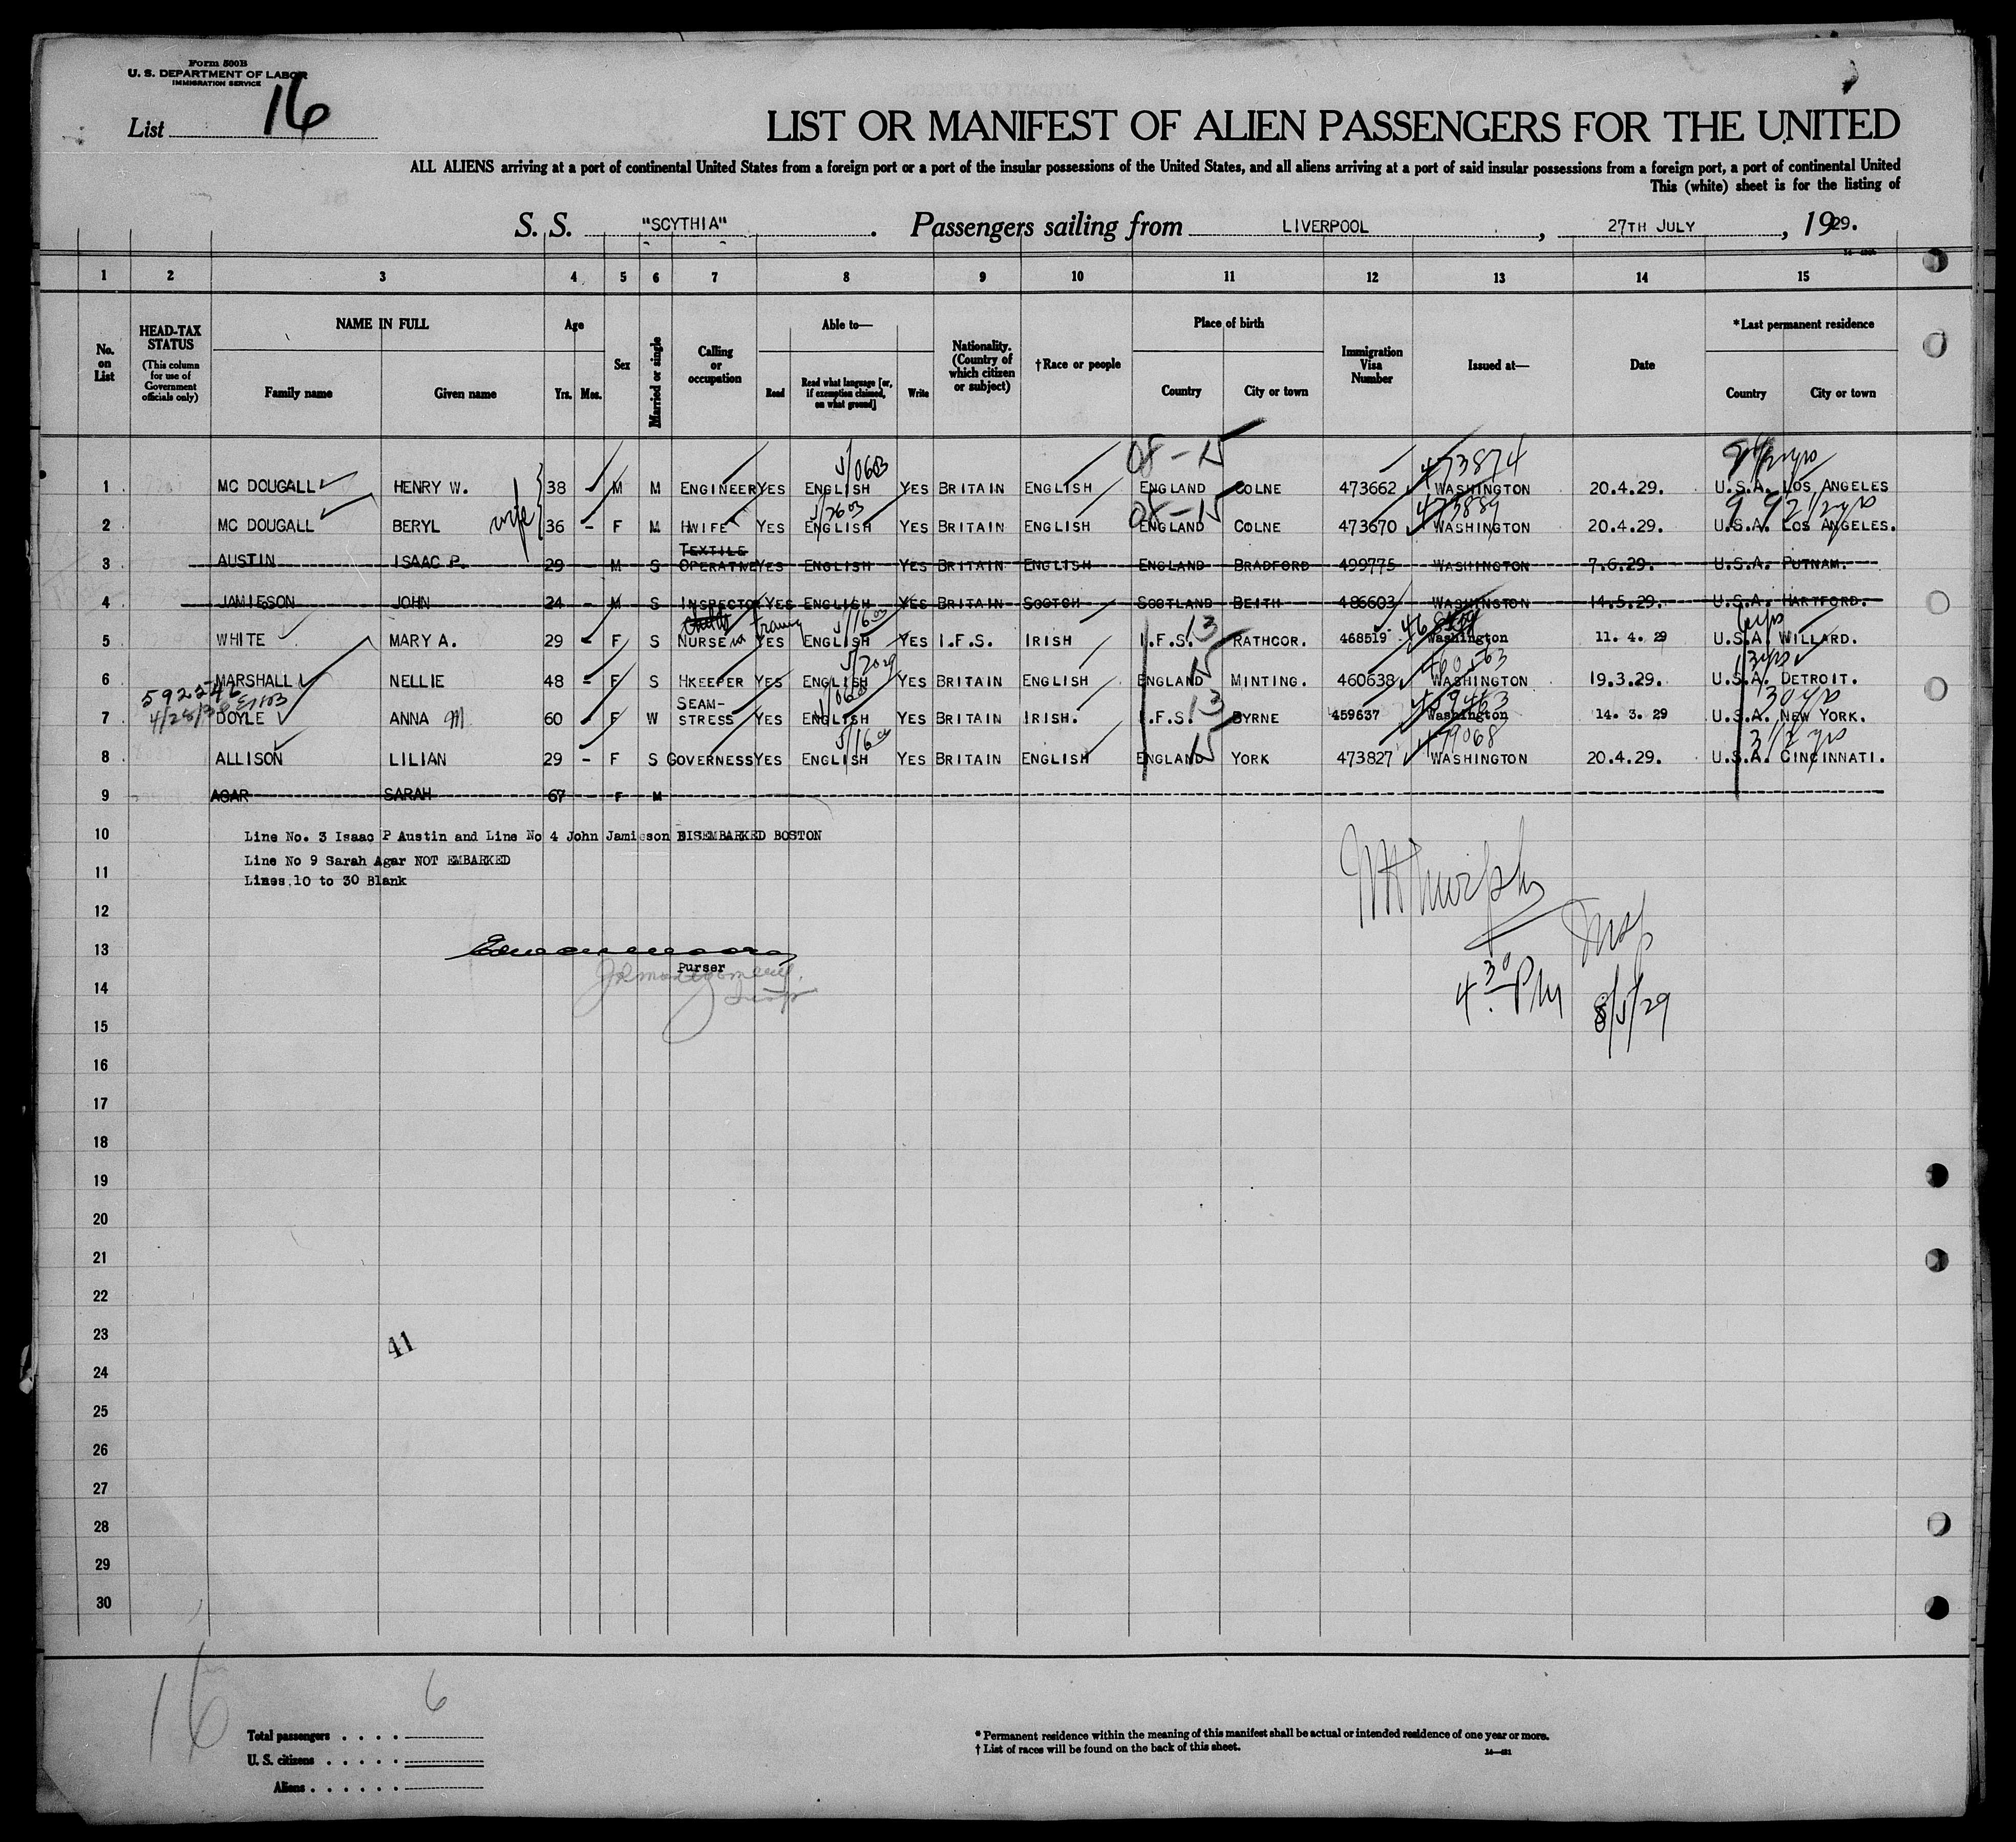 Form 500B
U. S. DEPARTMENT OF LABOR
IMMIGRATION SERVICE
List 16
LIST OR MANIFEST OF ALIEN PASSENGERS FOR THE UNITED
ALL ALIENS arriving at a port of continental United States from a foreign port or a port of the insular possessions of the United States, and all aliens arriving at a port of said insular possessions from a foreign port, a port of continental United
This (white) sheet is for the listing of
S. S. "SCYTHIA". Passengers sailing from LIVERPOOL, 27TH JULY, 1929.
1 2 3 4 5 6 7 8 9 10 11 12 13 14 15
No. on List
HEAD-TAX STATUS
(This column for use of Government officials only)
NAME IN FULL
Family name Given name
Age
Yrs. Mos.
Sex
Married or single
Calling or occupation
Able to—
Read Read what language [or, if exemption claimed, on what ground] Write
Nationality. (Country of which citizen or subject)
†Race or people
Place of birth
Country City or town
Immigration Visa Number
Issued at—
Date
*Last permanent residence
Country City or town
08-15 473874
1 MC DOUGALL HENRY W. 38 M M ENGINEER YES ENGLISH YES BRITAIN ENGLISH ENGLAND COLNE 473662 WASHINGTON 20.4.29. U.S.A. LOS ANGELES
wife 08-15
2 MC DOUGALL BERYL 36 - F M HWIFE YES ENGLISH YES BRITAIN ENGLISH ENGLAND COLNE 473670 WASHINGTON 20.4.29. U.S.A. LOS ANGELES.
3 AUSTIN ISAAC P. 29 - M S TEXTILE OPERATIVE YES ENGLISH YES BRITAIN ENGLISH ENGLAND BRADFORD 499775 WASHINGTON 7.6.29. U.S.A. PUTNAM.
4 JAMIESON JOHN 24 - M S INSPECTOR YES ENGLISH YES BRITAIN SCOTCH SCOTLAND BEITH 486603 WASHINGTON 14.5.29. U.S.A. HARTFORD.
13
5 WHITE MARY A. 29 F S NURSE YES ENGLISH YES I.F.S. IRISH I.F.S. RATHCOR. 468519 Washington 11. 4. 29 U.S.A. WILLARD.
15 460563
6 MARSHALL NELLIE 48 - F S HKEEPER YES ENGLISH YES BRITAIN ENGLISH ENGLAND MINTING. 460638 WASHINGTON 19.3.29. U.S.A. DETROIT.
592246
13 459463 30 yrs
7 DOYLE ANNA M 60 F W SEAMSTRESS YES ENGLISH YES BRITAIN IRISH. I.F.S. BYRNE 459637 Washington 14. 3. 29 U.S.A. NEW YORK.
15 3 1/2 yrs
8 ALLISON LILIAN 29 - F S GOVERNESS YES ENGLISH YES BRITAIN ENGLISH ENGLAND YORK 473827 WASHINGTON 20.4.29. U.S.A. CINCINNATI.
9 AGAR SARAH 67 F M
10 Line No. 3 Isaac P Austin and Line No 4 John Jamieson DISEMBARKED BOSTON
Line No 9 Sarah Agar NOT EMBARKED
11 Lines 10 to 30 Blank
12
13
Purser
14
4 30 PM 8/5/29
15
16
17
18
19
20
21
22
23
41
24
25
26
27
28
29
30
16
6
Total passengers . . . .
U. S. citizens . . . . .
Aliens . . . . . .
* Permanent residence within the meaning of this manifest shall be actual or intended residence of one year or more.
† List of races will be found on the back of this sheet.